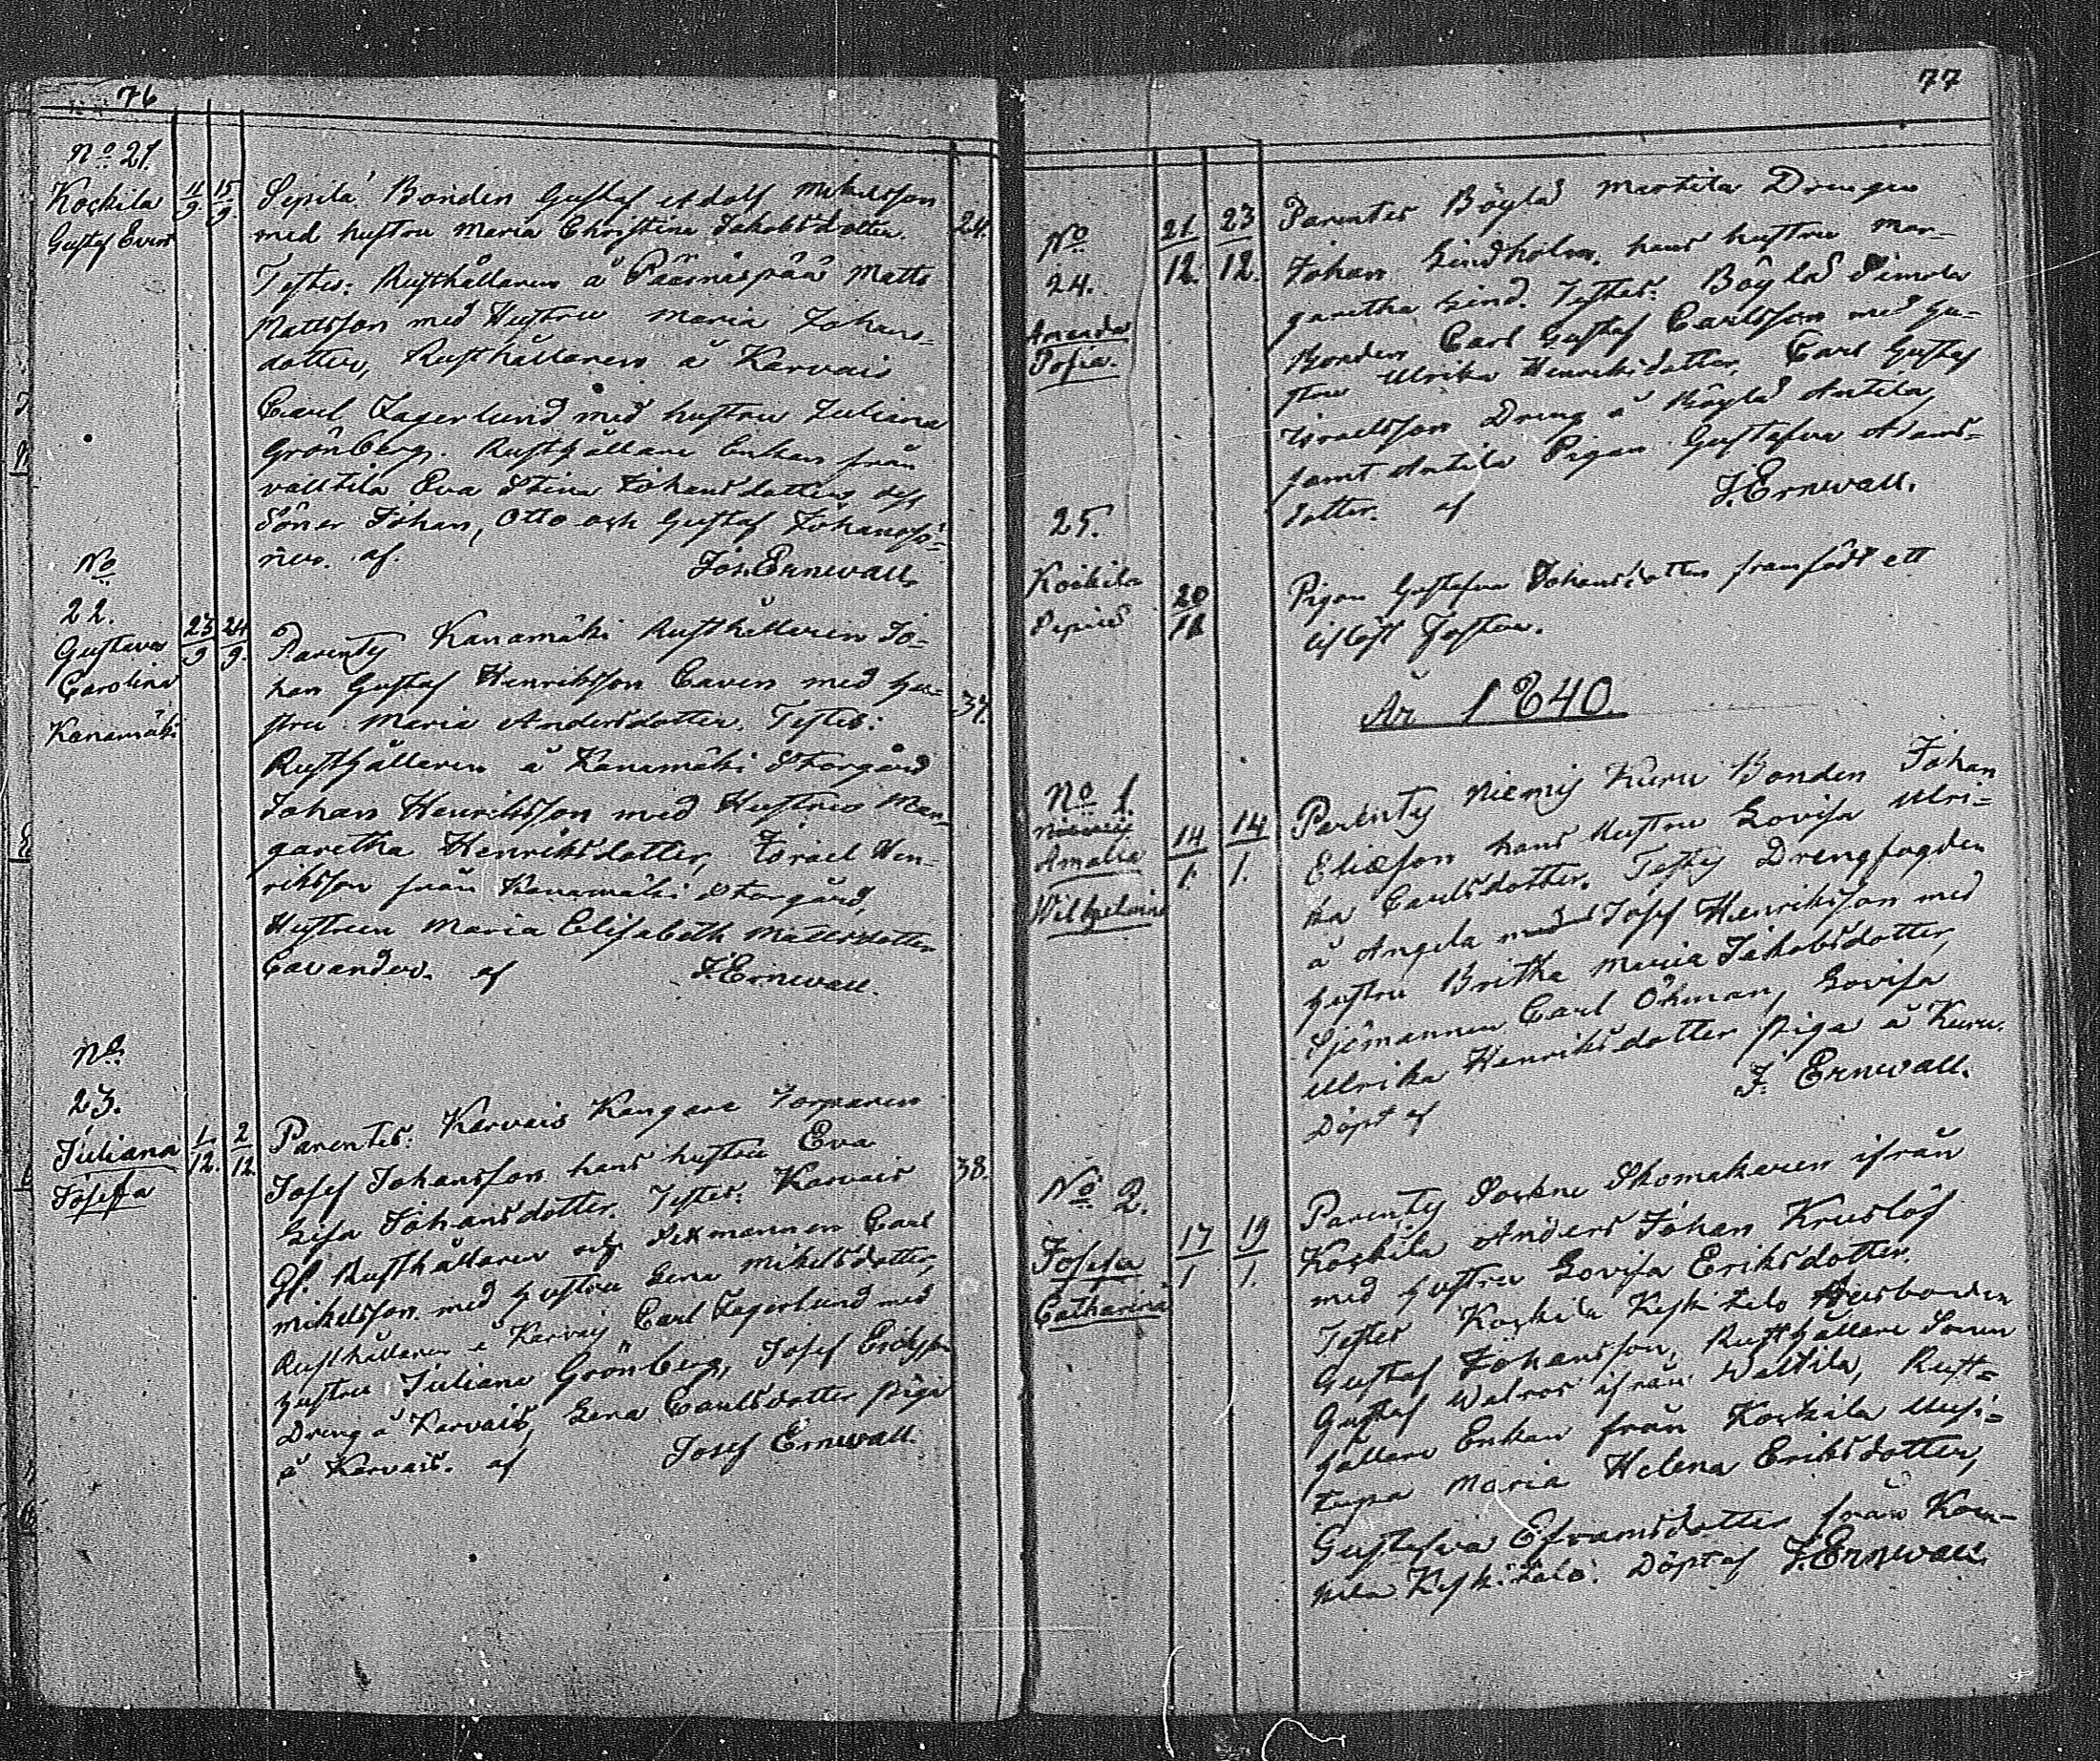 76
No 21.
Koskila
Gustaf Evert
11/9 15/9
Sepilä Bonden Gustaf Adolf Mikelsson
med hustru Maria Christina Jakobsdotter.
24.
Testes: Rusthållaren å Päärnäspää Matts
Mattsson med Hustru Maria Johans-
dotter, Rusthållaren å Karvais
Carl Lagerlund med hustru Juliana
Grönberg. Rusthållare Enkan från
Valtila Eva Stina Johansdotter, dess
Söner Johan, Otto och Gustaf Johansso-
ner. af. Jos. Ernwall.
No
22.
Gustava
Carolina
Kanamäki
23/9 24/9.
Parentes Kanamäki Rusthållaren Jo-
han Gustaf Henriksson Caven med hu-
stru Maria Andersdotter. Testes:
37.
Rusthållaren å Kanamäki Storgård
Johan Henriksson med Hustru Mar-
garetha Henriksdotter, Israel Hen-
riksson från Kanamäki Storgård,
Hustrun Maria Elisabeth Mattsdotter
Cavander. af J. Ernwall.
No
23.
Juliana
Josefa
1/12. 2/12
Parentes: Karvais Kangare Torparen
Josef Johansson hans hustru Eva
Lisa Johansdotter. Testes: Karvais
38.
Gf. Rusthållaren och Sexmannen Carl
Mikelsson med hustru Lena Mikelsdotter,
Rusthållaren å Karvais Carl Lagerlund med
hustru Juliana Grönberg, Josef Eriksson
Dreng å Karvais, Lena Carlsdotter piga
å Karvais. af Josef Ernwall.
77
No
24.
Amanda
Sofia.
21/12. 23/12.
Parentes Böylä Martila Drengen
Johan Lindholm. hans hustru Mar-
garetha Lind. Testes: Böylä Simola
Bonden Carl Gustaf Carlsson med hu-
stru Ulrika Henriksdotter, Carl Gustaf
Israelsson Dreng å Böylä Antila,
samt Antila Pigan Gustafva Adams-
dotter. af J. Ernwall.
25.
Koskila
20/12
Pigan Gustafva Johansdotter framfödt ett
liflöst Foster.
År 1840.
No 1.
Niemis
Amalia
Wilhelmina
14/1. 14/1.
Parentes Niemis Kuru Bonden Johan
Eliæson hans Hustru Lovisa Ulri-
ka Carlsdotter. Testes Drengfogden
å Angela med Josef Henriksson med
hustru Britha Maria Jakobsdotter,
Sjömannen Carl Öhman, Lovisa
Ulrika Henriksdotter piga å Kuru.
Döpt af J. Ernwall.
No 2.
Josefa
Catharina
17/1 19/1.
Parentes Sockne Skomakaren ifrån
Koskila Anders Johan Kruslöf
med hustru Lovisa Eriksdotter.
Testes Koskila Keskitalo Husbonden
Gustaf Johansson, Rusthållare Sonen
Gustaf Walros ifrån Waltila, Rust-
hållare Enkan från Koskila Uusi-
tupa Maria Helena Eriksdotter,
Gustafva Eframsdotter från Kos-
kila Keskitalo. Döpt af J. Ernwall.